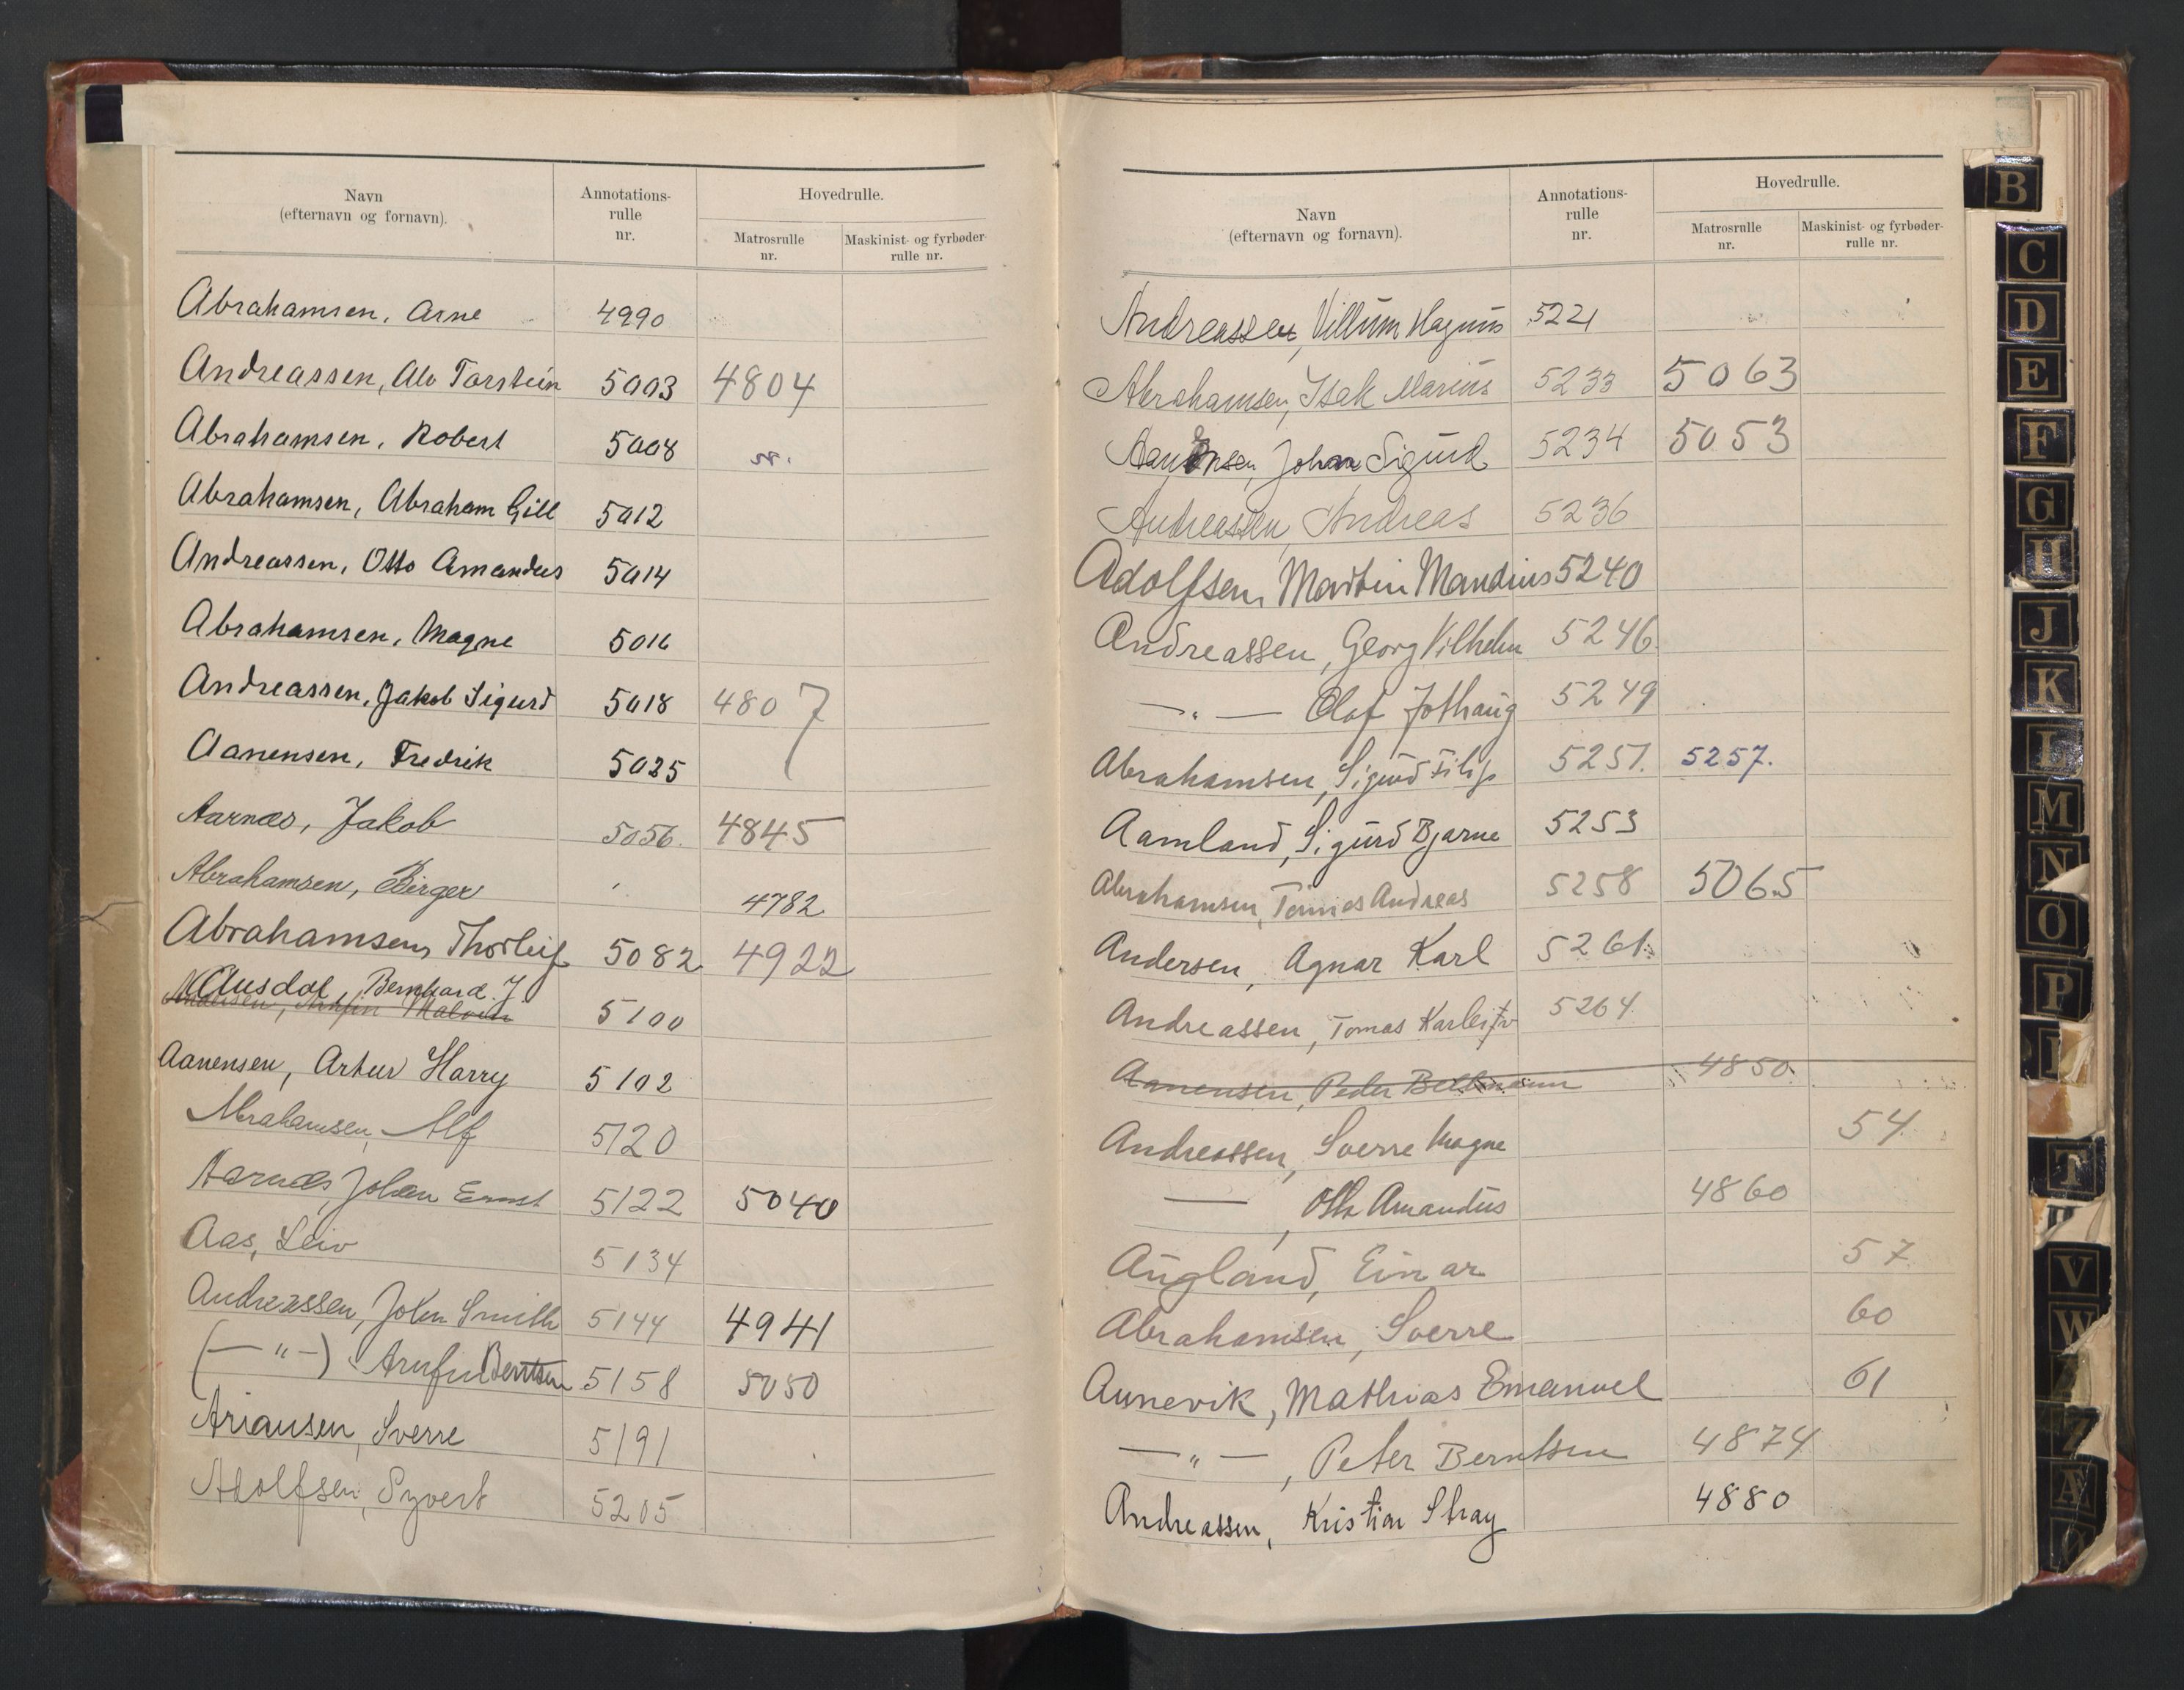 Navn
(efternavn og fornavn).
Annotations-
rulle
nr.
Hovedrulle.
Matrosrulle
nr.
Maskinist- og fyrbøder-
rulle nr.
Abrahamsen, Arne 4990
Andreassen, Alv Torstein 5003 4804
Abrahamsen, Robert 5008
Abrahamsen, Abraham Gill 5012
Andreassen, Otto Amandus 5014
Abrahamsen, Magne 5016
Andreassen, Jakob Sigurd 5018 4807
Aanensen, Fredrik 5025
Aarnæs, Jakob 5056. 4845
Abrahamsen, Birger 4782
Abrahamsen, Thorleif 5082 4922
Ausdal Bernhard. J 5100
Aanensen, Artur Harry 5102
Abrahamsen, Alf 5120
Aarnæs, Johan Ernst 5122 5040
Aas, Leiv 5134
Andreassen, John Smith 5144 4941
(— " —) Arnfin Berntsen 5158 5050
Ariansen, Sverre 5191
Adolfsen, Syvert 5205
Navn
(efternavn og fornavn).
Annotations-
rulle
nr.
Hovedrulle.
Matrosrulle
nr.
Maskinist- og fyrbøder-
rulle nr.
Andreassen, Villum Magnus 5221
Abrahamsen, Isak Marius 5233 5063
Aanensen, Johan Sigurd 5234 5053
Andreassen, Andreas 5236
Adolfsen, Martin Mandius 5240
Andreassen, Georg Vilhelm 5246.
— " — Olaf 5249
Abrahamsen, Sigurd Filip 5251. 5257.
Aamland, Sigurd Bjarne 5253
Abrahamsen, Tomas Andreas 5258 5065
Andersen, Agnar Karl 5261.
Andreassen, Tomas 5264.
Aanensen, Peder 4850.
Andreassen, Sverre Magne 54.
—, Otto Amandus 4860
Augland, Einar 57
Abrahamsen, Sverre 60
Aunevik, Mathias Emanuel 61
— " —, Peter Berntsen 4874
Andreassen, Kristian Stray 4880
B
C
D
E
F
G
H
J
K
L
M
N
O
P
T
V
W
Z
Æ